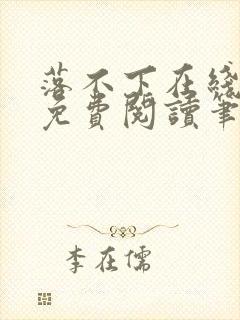 落不下在綫
免費閱讀筆
李在儒